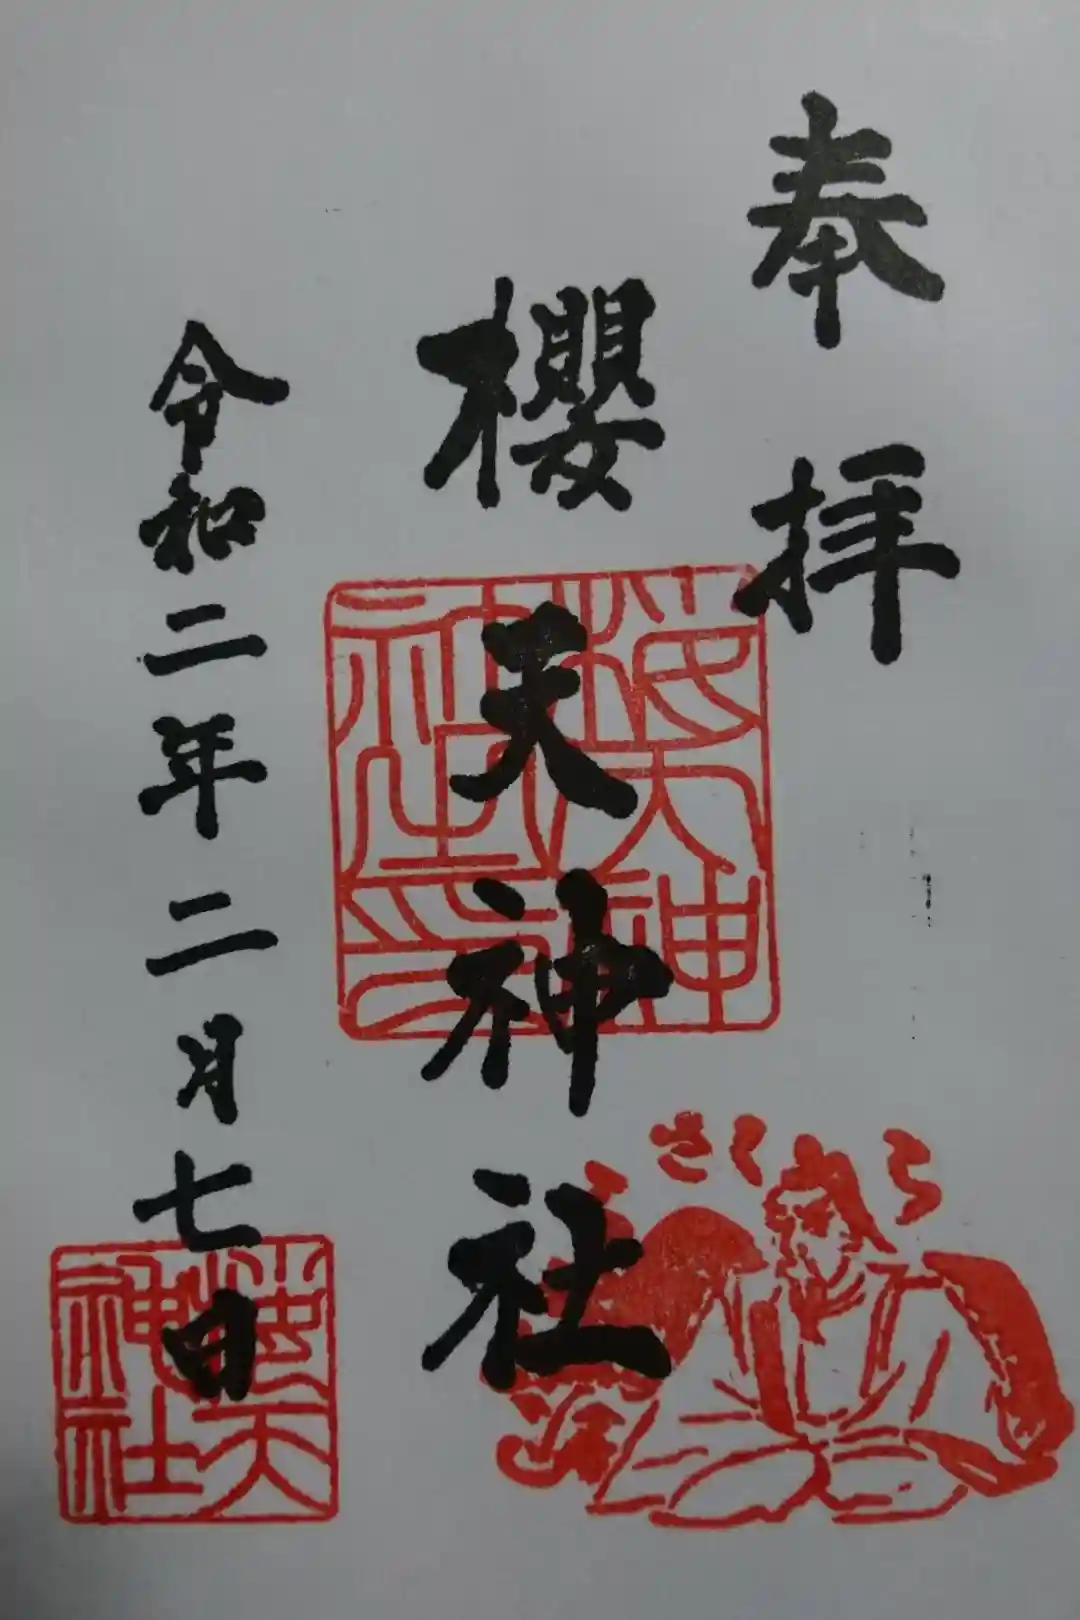 奉拝
櫻天神社
令和二年二月七日
さくら
天神
社印
天
神社